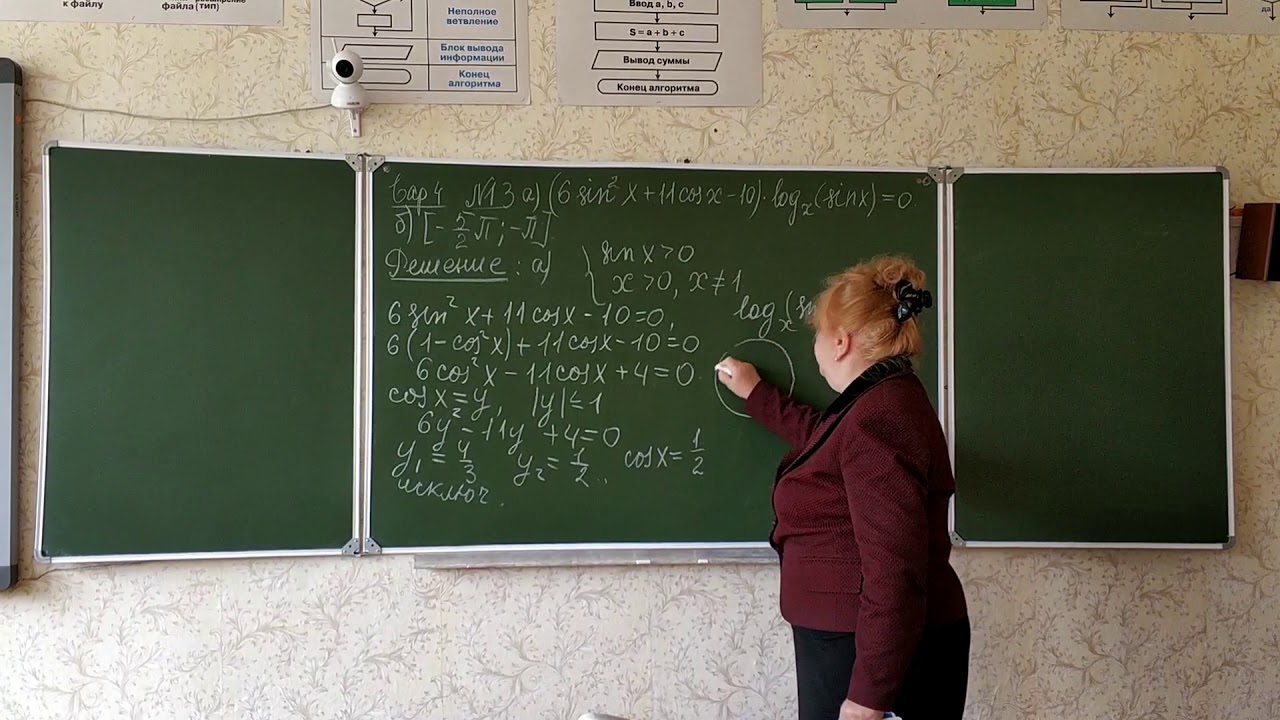 к файлу
расширение
файла (тип)
Неполное
ветвление
Блок вывода
информации
Конец
алгоритма
Ввод a, b, c
S = a + b + c
Вывод суммы
Конец алгоритма
да
Вар 4 №13 а) (6 sin² x + 11 cos x - 10) · logₓ(sin x) = 0
б) [-5/2 π; -π]
Решение: а) { sin x > 0
x > 0, x ≠ 1
6 sin² x + 11 cos x - 10 = 0,
logₓ(
6 (1 - cos² x) + 11 cos x - 10 = 0
6 cos² x - 11 cos x + 4 = 0
cos x = y, |y| ≤ 1
6y² - 11y + 4 = 0
y₁ = 4/3 y₂ = 1/2 cos x = 1/2
исключ.